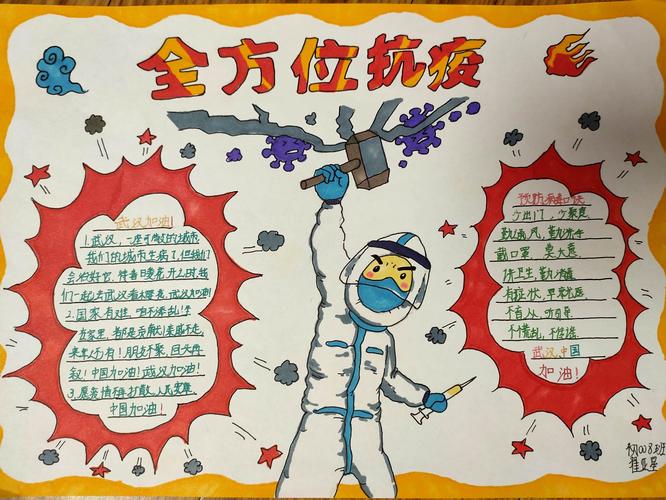 全方位抗疫
武汉加油!
1.武汉,一座可敬的城市
我们的城市生病了,但我们
会治好它,待春暖花开之时,我
们一起去武汉看樱花。武汉加油!
2.国家有难,咱不添乱!宅
在家里,都是贡献!亲戚不走,
来年还有!朋友不聚,回头再
叙!中国加油!武汉加油!
3.愿疫情不再扩散,人民安康
中国加油!
预防病毒口诀
少出门,少聚集
勤通风,勤洗手
戴口罩,莫大意
讲卫生,勤消毒
有症状,早就医
不慌乱,不传谣
武汉,中国
加油!
初008班